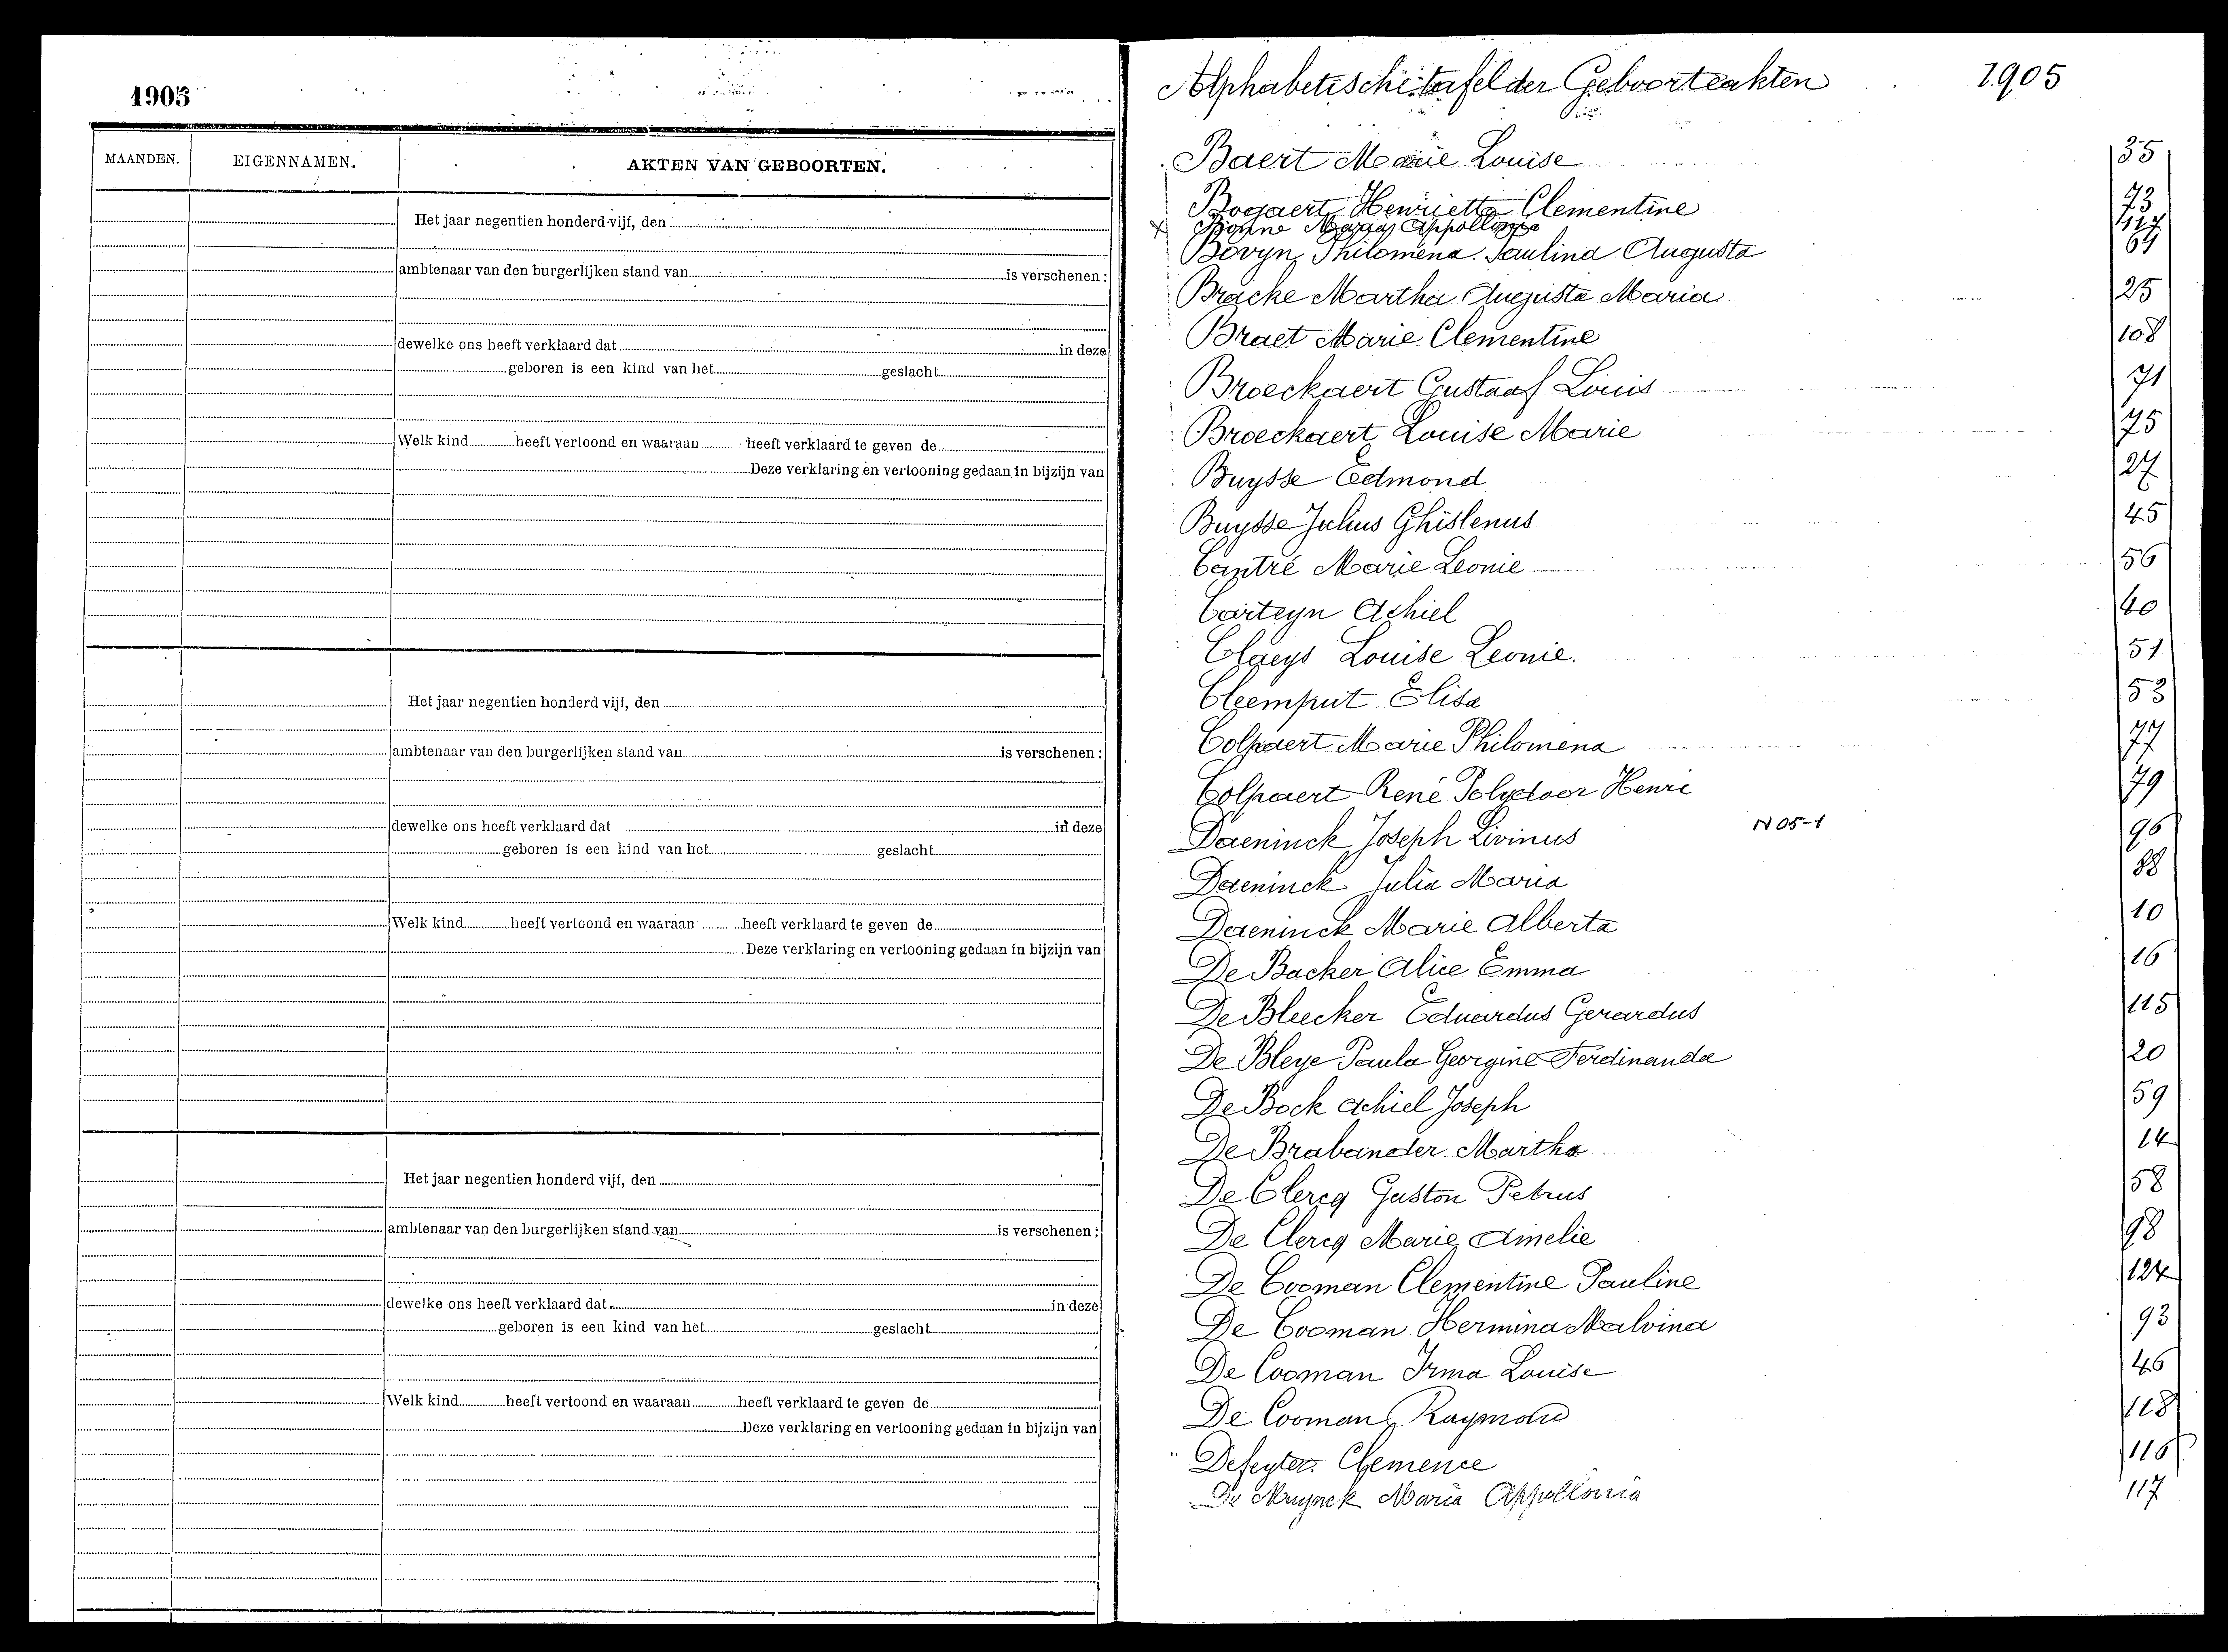 1905
MAANDEN. EIGENNAMEN. AKTEN VAN GEBOORTEN.
Het jaar negentien honderd vijf, den
ambtenaar van den burgerlijken stand van is verschenen :
dewelke ons heeft verklaard dat in deze
geboren is een kind van het geslacht
Welk kind heeft vertoond en waaraan heeft verklaard te geven de
Deze verklaring en vertooning gedaan in bijzijn van
Het jaar negentien honderd vijf, den
ambtenaar van den burgerlijken stand van is verschenen :
dewelke ons heeft verklaard dat in deze
geboren is een kind van het geslacht
Welk kind heeft vertoond en waaraan heeft verklaard te geven de
Deze verklaring en vertooning gedaan in bijzijn van
Het jaar negentien honderd vijf, den
ambtenaar van den burgerlijken stand van is verschenen :
dewelke ons heeft verklaard dat in deze
geboren is een kind van het geslacht
Welk kind heeft vertoond en waaraan heeft verklaard te geven de
Deze verklaring en vertooning gedaan in bijzijn van
Alphabetische tafel der Geboorteakten 1905
Baert Marie Louise 35
Bogaert Henrietta Clementine 73
x Bonne Maria Appollonia 117
Bovyn Philomena Paulina Augusta 64
Bracke Martha Augusta Maria 25
Braet Marie Clementine 108
Broeckaert Gustaaf Louis 71
Broeckaert Louise Marie 75
Buysse Edmond 27
Buysse Julius Ghislenus 45
Cantré Marie Leonie 56
Carteyn Achiel 40
Claeys Louise Leonie. 51
Cleemput Elisa 53
Colpaert Marie Philomena 77
Colpaert René Polydoor Henri 79
Daeninck Joseph Livinus N 05-1 96
Daeninck Julia Maria 88
Daeninck Marie Alberta 10
De Backer Alice Emma 16
De Bleecker Eduardus Gerardus 115
De Bleye Paula Georgine Ferdinanda 20
De Bock Achiel Joseph 59
De Brabander Martha 14
De Clercq Gaston Petrus 58
De Clercq Marie Amelie 98
De Cooman Clementine Pauline 124
De Cooman Hermina Malvina 93
De Cooman Irma Louise 46
De Cooman Raymond 118
Defeyter Clemence 116
De Muynck Maria Appollonia 117